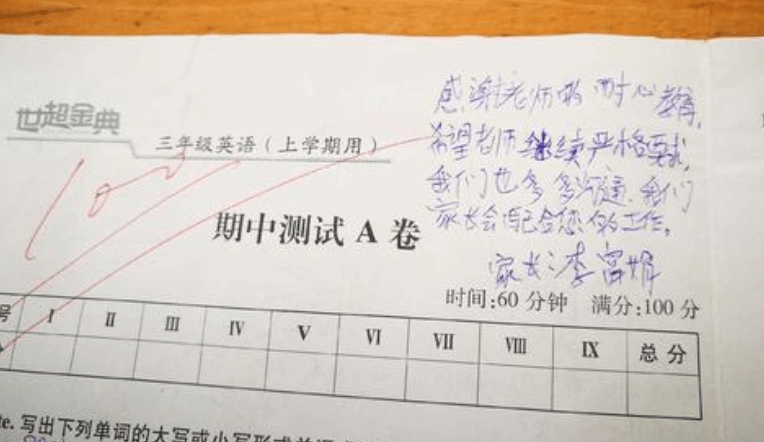 世超金典
三年级英语(上学期用)
100
感谢老师的耐心教育,
希望老师继续严格要求,
我们也多多沟通.我们
家长会配合您的工作。
家长:李富娟
期中测试 A 卷
时间:60 分钟 满分:100 分
号 I II III IV V VI VII VIII IX 总分
te. 写出下列单词的大写或小写形式